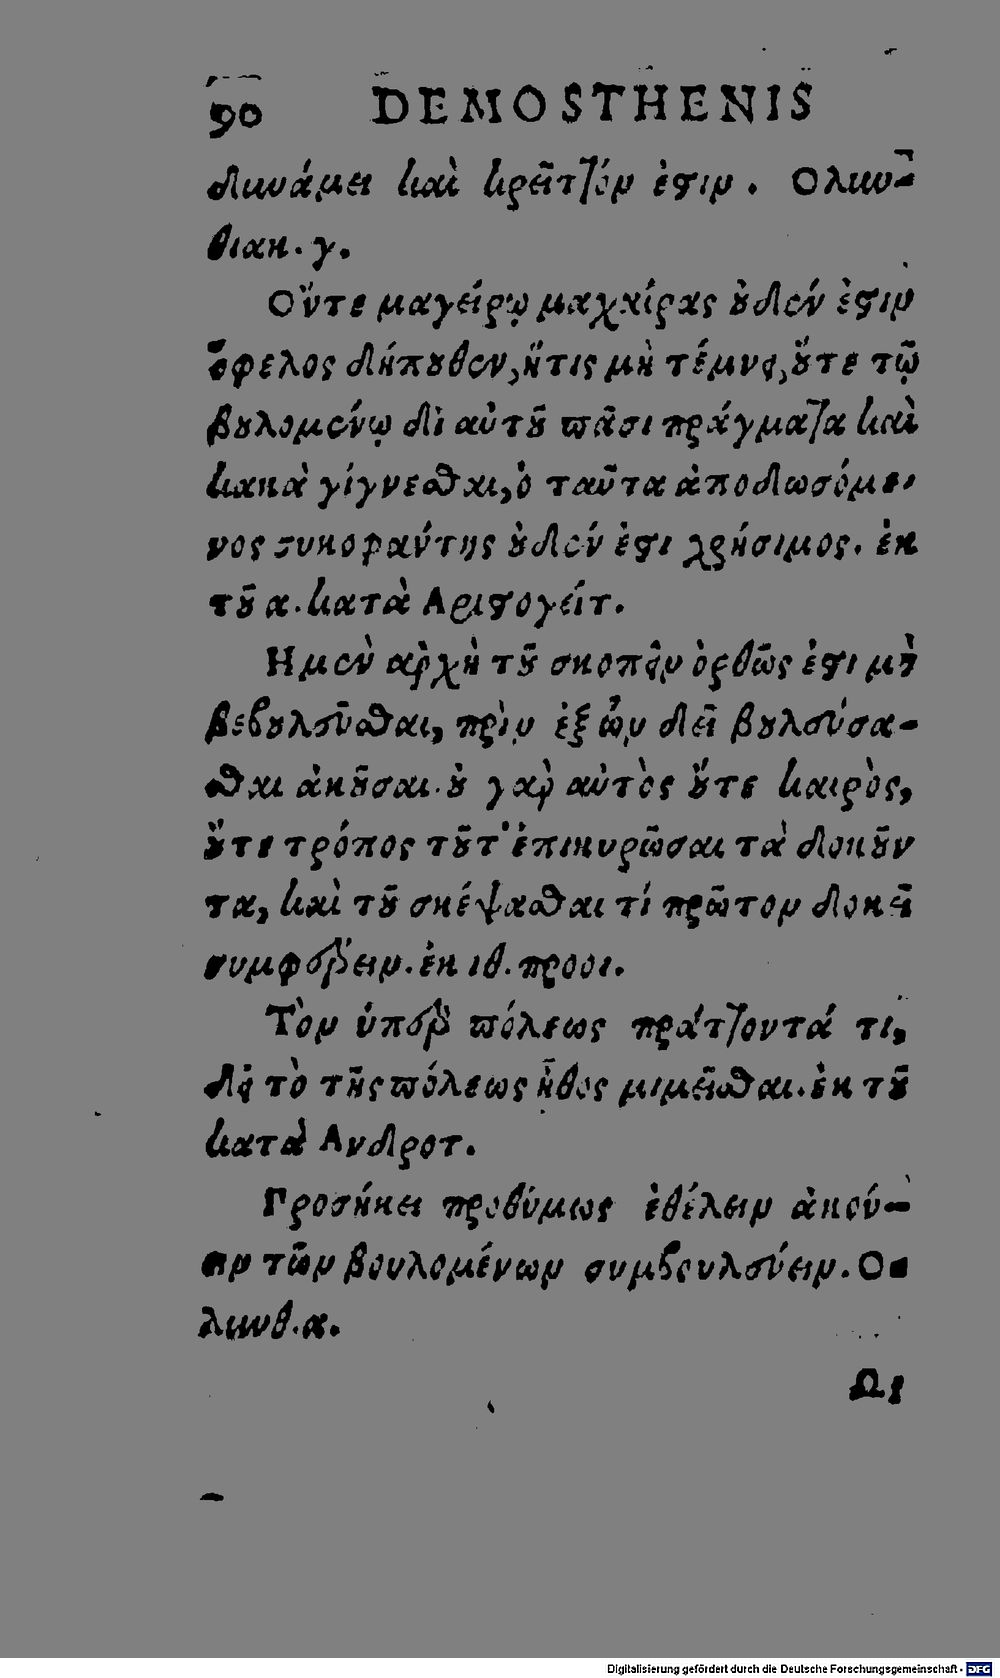 90 DEMOSTHENIS
δυνάμει καὶ κρεῖττόν ἐστιν. Ολυν-
θιακ. γ.
Οὔτε μαγείρῳ μαχαίρας οὐδέν ἐστιν
ὄφελος δήπουθεν, ἥτις μὴ τέμνει, οὔτε τῷ
βουλομένῳ δι αὑτοῦ πᾶσι πράγματα καὶ
κακὰ γίγνεσθαι, ὁ ταῦτα ἀποδωσόμε-
νος συκοφαντης οὐδέν ἐστι χρήσιμος. ἐκ
τοῦ α. κατὰ Αριστογείτ.
Ημὲν ἀρχὴ τοῦ σκοπεῖν ὀρθῶς ἐστι μὴ
βεβουλεῦσθαι, πρὶν ἐξ ὧν δεῖ βουλεύσα-
σθαι ἀκοῦσαι. οὐ γὰρ αὐτὸς οὔτε καιρὸς,
οὔτε τρόπος τοῦτ' ἐπικυρῶσαι τὰ δοκοῦν
τα, καὶ τοῦ σκέψασθαι τί πρῶτον δοκεῖ
συμφέρειν. ἐκ ιθ. προοι.
Τὸν ὑπὲρ πόλεως πράττοντά τι,
δεῖ τὸ τῆς πόλεως ἦθος μιμεῖσθαι. ἐκ τοῦ
κατὰ Ανδροτ.
Προσήκει προθύμως ἐθέλειν ἀκού-
ειν τῶν βουλομένων συμβουλεύειν. Ο-
λυνθ. α.
Ωι
Digitalisierung gefördert durch die Deutsche Forschungsgemeinschaft - DFG